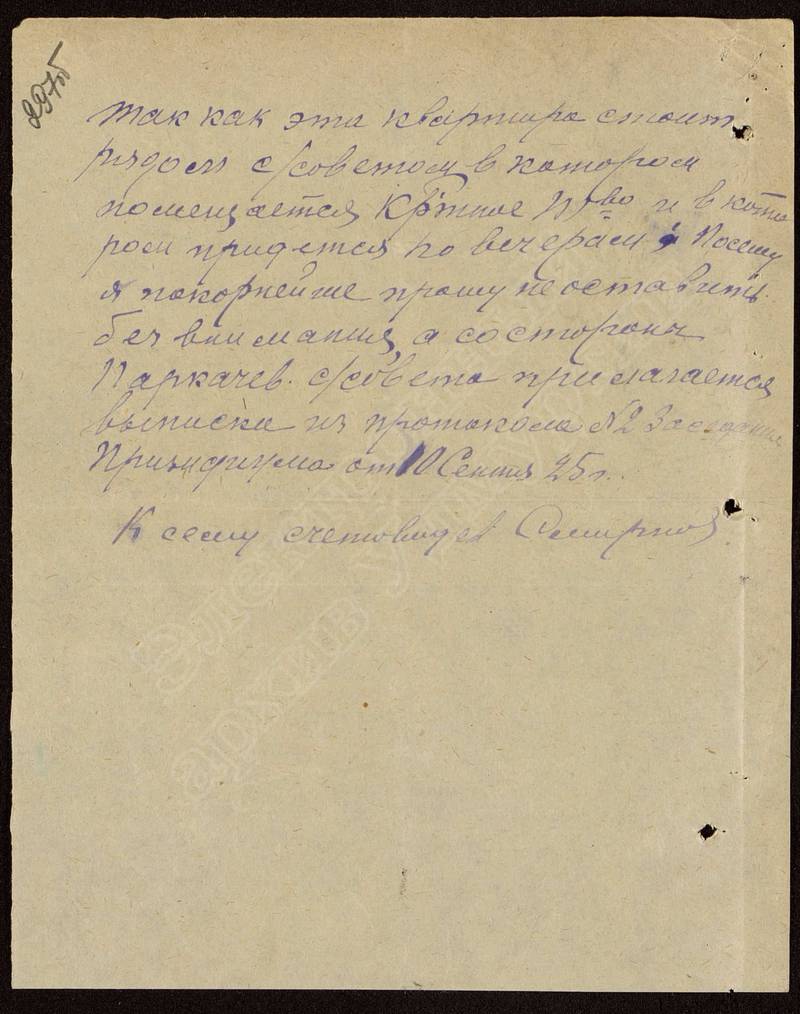 297об
так как эта квартира стоит
рядом с/советом в котором
помещается Кр-тное П-во и в кото
ром придется по вечерам, Посему
я покорнейше прошу не оставить
без внимания, а со стороны
Паркачев. с/совета прилагается
выписка из протокола №2 Заседания
Призидиума от 10 Сентя 25 г.
К сему счетовод Смирнов
Электр
архив